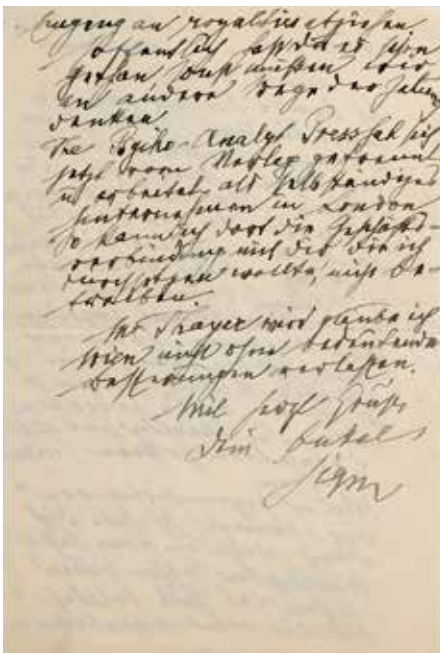 Eingang an royalties abziehen
Hoffentlich hast du es schon
gethan sonst müßten wir
an andere Wege der Zahlung
denken
Die Psycho-Analyt Press hat sich
jetzt vom Verlag getrennt
u arbeitet als selbständiges
Unternehmen in London
So kann ich dort die Geschäfts-
verbindung mit dir die ich
durchsetzen wollte, nicht be-
treiben.
Thayer wird glaube ich
Wien nicht ohne bedeutende
Besserungen verlassen.
Mit herzl Gruß
Dein Onkel
Sigm